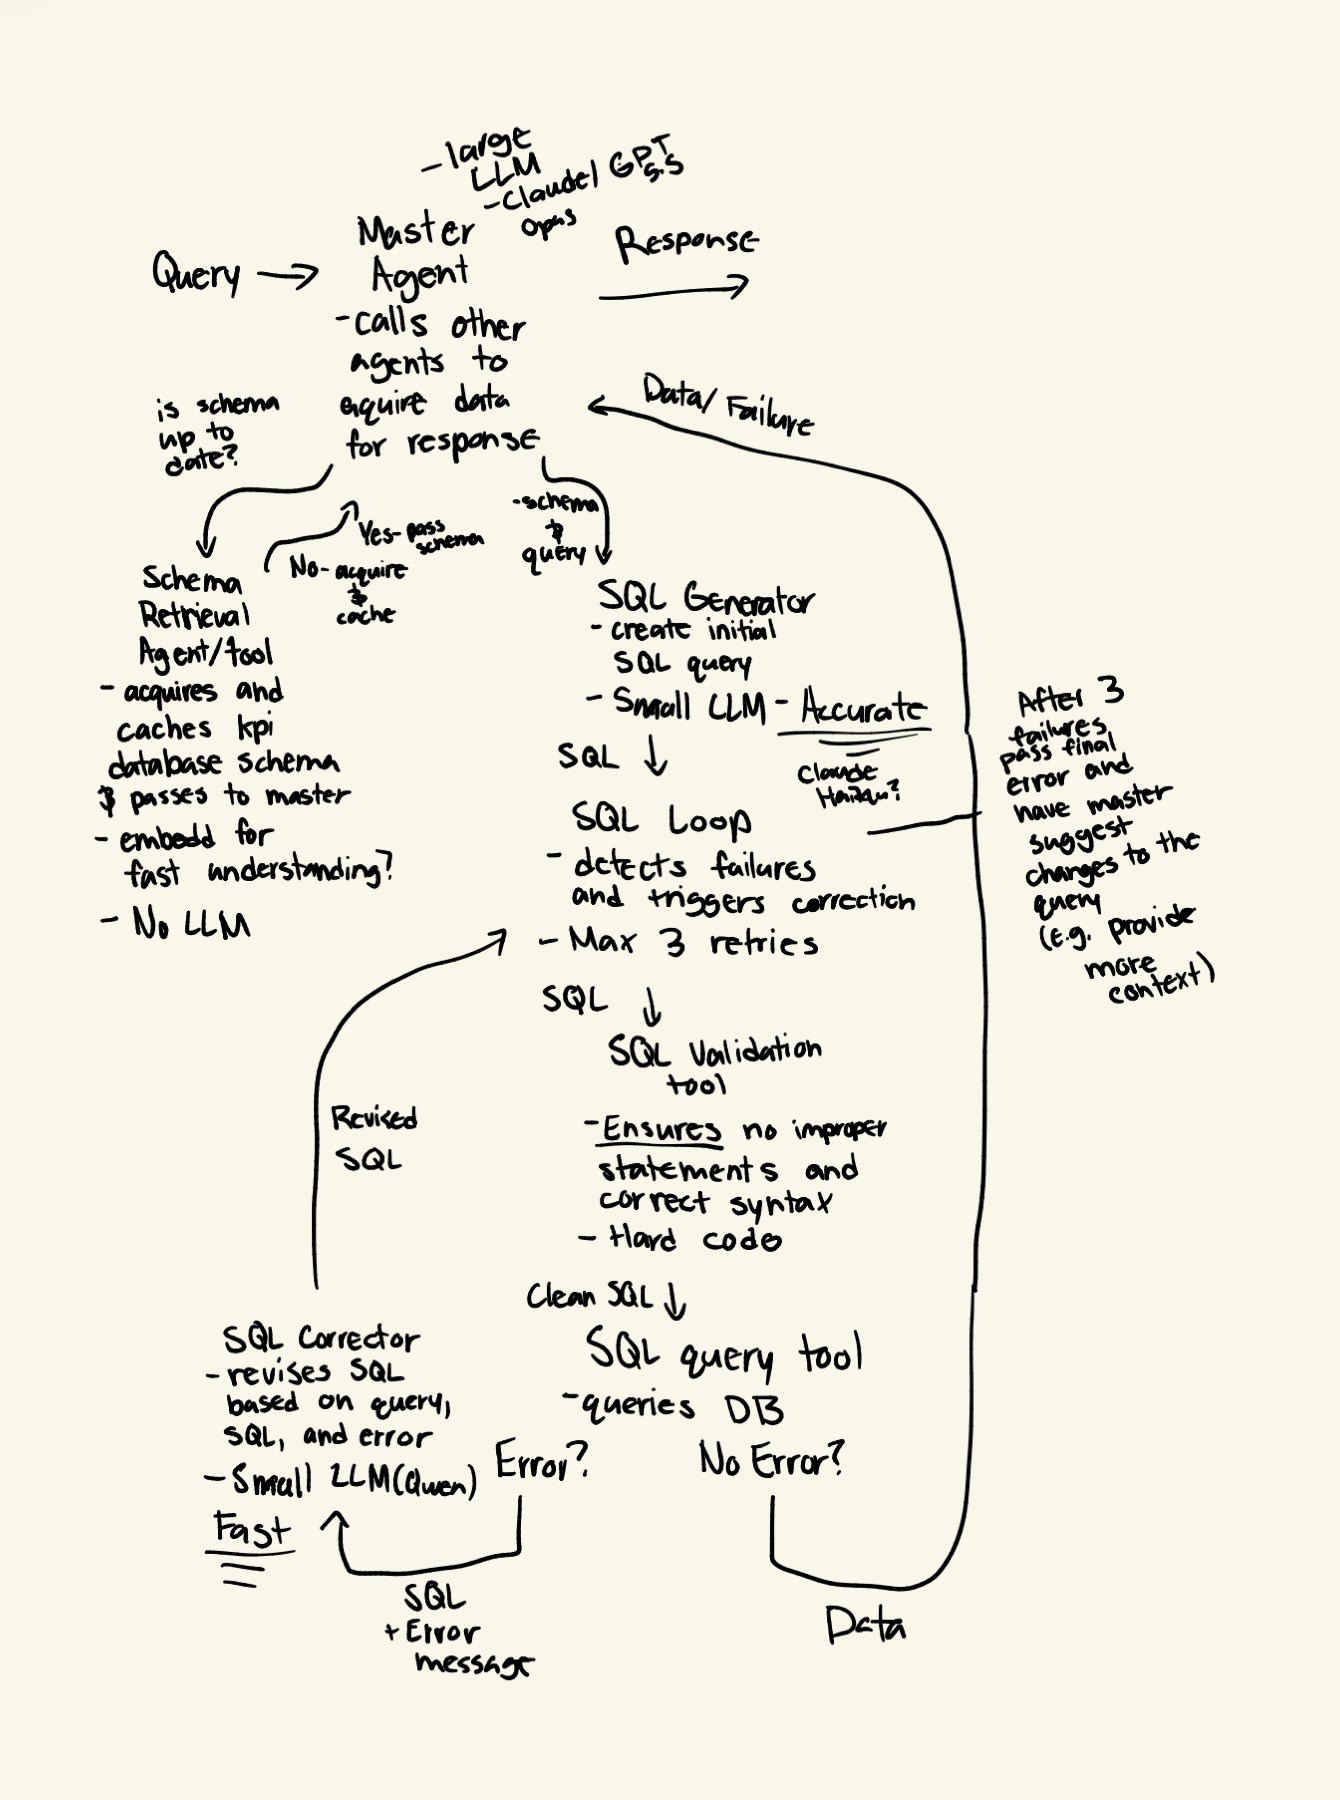 - large
LLM
- Claude / GPT
opus
5.5
Master
Agent
Query
Response
- calls other
agents to
aquire data
for response
is schema
up to
date?
Data / Failure
Yes - pass
schema
No - acquire
&
cache
- schema
&
query
Schema
Retrieval
Agent/tool
- acquires and
caches kpi
database schema
& passes to master
- embedd for
fast understanding?
- No LLM
SQL Generator
- create initial
SQL query
- Small LLM - Accurate
Claude
Haiku?
SQL
SQL Loop
- detects failures
and triggers correction
- Max 3 retries
After 3
failures
pass final
error and
have master
suggest
changes to the
query
(e.g. provide
more
context)
SQL
SQL Validation
tool
- Ensures no improper
statements and
correct syntax
- Hard code
Revised
SQL
Clean SQL
SQL query tool
- queries DB
Error?
No Error?
SQL Corrector
- revises SQL
based on query,
SQL, and error
- Small LLM (Qwen)
Fast
SQL
+ Error
message
Data